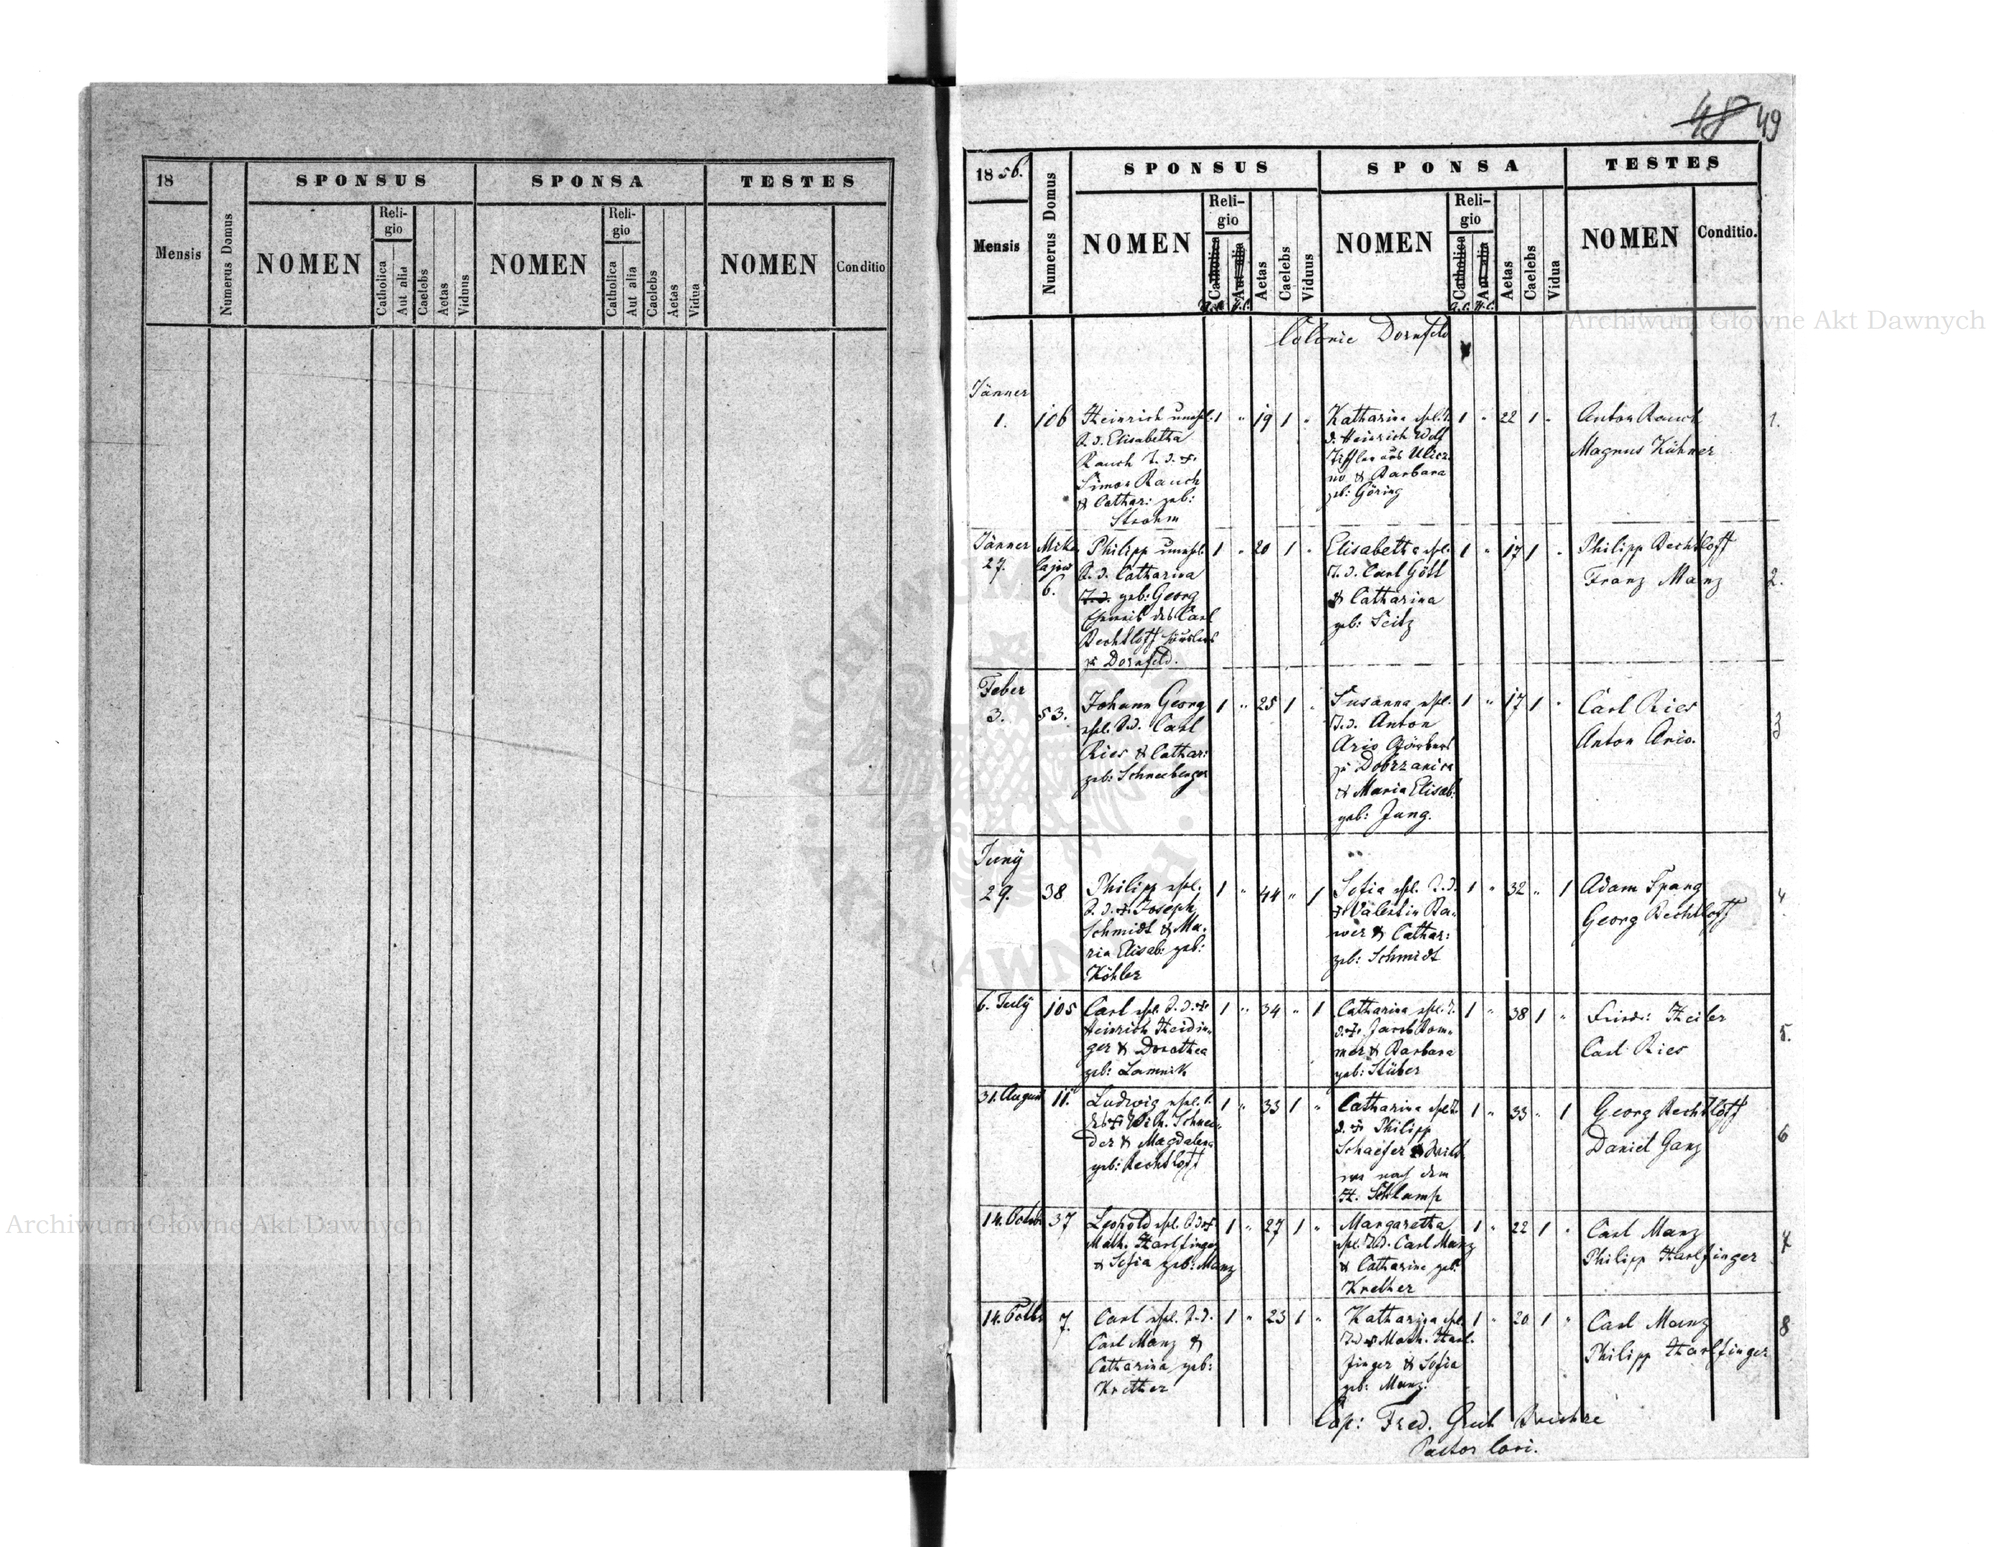 48 49
18
SPONSUS
SPONSA
TESTES
Mensis
Numerus Domus
NOMEN
Reli-
gio
Catholica
Aut alia
Caelebs
Aetas
Viduus
NOMEN
Reli-
gio
Catholica
Aut alia
Caelebs
Aetas
Vidua
NOMEN
Conditio
1856.
SPONSUS
SPONSA
TESTES
Mensis
Numerus Domus
NOMEN
Reli-
gio
Catholica
Aut alia
A.C. H.C.
Aetas
Caelebs
Viduus
NOMEN
Reli-
gio
Catholica
Aut alia
A.C. H.C.
Aetas
Caelebs
Vidua
NOMEN
Conditio.
Archiwum Główne Akt Dawnych
Colonie Dornfeld
Jänner
1. 106
Heinrich unehl.
S. d. Elisabetha
Rauch T. d. +
Simon Rauch
& Cathar: geb:
Strohm
1 " 19 1 "
Katharina ehl. T.
d. Heinrich Wolf
aus Ulicz
no & Barbara
geb: Göring
1 " 22 1 "
Anton Rauch
Magnus Kühner
1.
Jänner
27.
Miko
lajow
6.
Philipp unehl.
S. d. Catharina
T. d. geb: Georg
Eheweib des Carl
Bechtloff
zu Dornfeld.
1 " 20 1 "
Elisabetha ehl.
T. d. Carl Göll
& Catharina
geb: Seitz
1 " 17 1 "
Philipp Bechtloff
Franz Manz
2.
Feber
3. 53.
Johann Georg
ehl. S. d. Carl
Ries & Cathar:
geb: Schneeberger
1 " 25 1 "
Susanna ehl.
T. d. Anton
Ario
zu Dobrzanica
& Maria Elisab:
geb: Jung.
1 " 17 1 "
Carl Ries
Anton Ario.
3
Juny
29. 38
Philipp ehl.
S. d. + Joseph
Schmidt & Ma-
ria Elisab: geb:
Köhler
1 " 44 " 1
Sofia ehl. T. d.
+ Valentin Ba-
wer & Cathar:
geb: Schmidt
1 " 32 " 1
Adam Spang
Georg Bechtloff
4.
6. July 105
Carl ehl. S. d. +
Heinrich Heidin-
ger & Dorothea
geb: Lamnik
1 " 34 " 1
Catharina ehl. T.
d. + Jacob Rom-
mer & Barbara
geb: Stüber
1 " 38 1 "
Friedr: Heiler
Carl Ries
5.
31. August 11.
Ludwig ehl. S.
des + Wilh. Schnei-
der & Magdalena
geb: Bechtloff
1 " 33 1 "
Catharina ehl. T.
d. + Philipp
Schaefer &
nach dem
H. Schlamp
1 " 33 " 1
Georg Bechtloff
Daniel Ganz
6
14. Octob 37
Leopold ehl. S. d. +
Math. Harlfinger
& Sofia geb: Manz
1 " 27 1 "
Margaretha
ehl. T. d. Carl Manz
& Catharina geb:
Krether
1 " 22 1 "
Carl Manz
Philipp Harlfinger
7
14. Octb 7.
Carl ehl. S. d.
Carl Manz &
Catharina geb:
Krether
1 " 23 1 "
Katharina ehl.
T. d. + Math. Harl-
finger & Sofia
geb: Manz.
1 " 20 1 "
Carl Manz
Philipp Harlfinger
8
Cop: Fred.
Pastor loci.
Archiwum Główne Akt Dawnych
ARCHIWUM GŁÓWNE AKT DAWNYCH